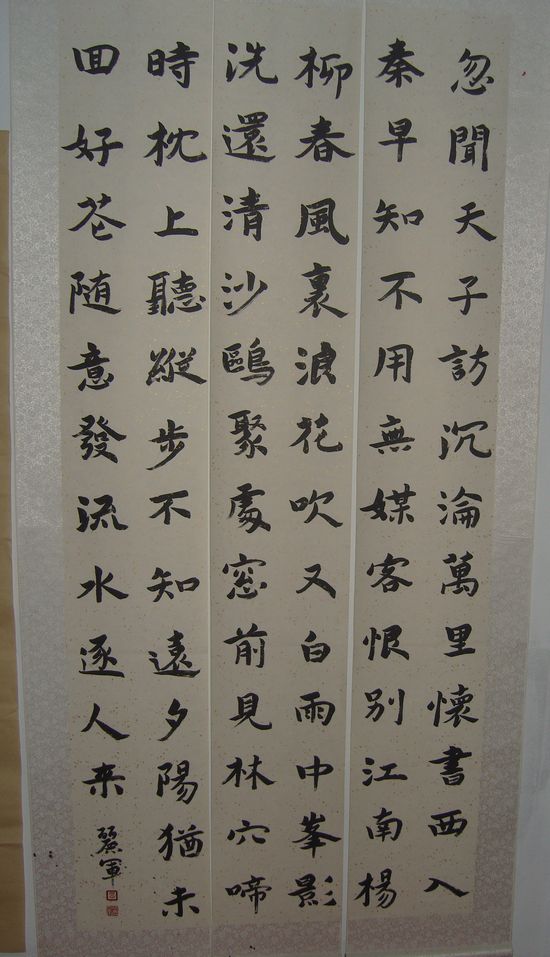 忽聞天子訪沉淪萬里懷書西入
秦早知不用無媒客恨別江南楊
柳春風裏浪花吹又白雨中峯影
洗還清沙鷗聚處窓前見林穴啼
時枕上聽縱步不知遠夕陽猶未
回好花随意發流水逐人来
麗軍